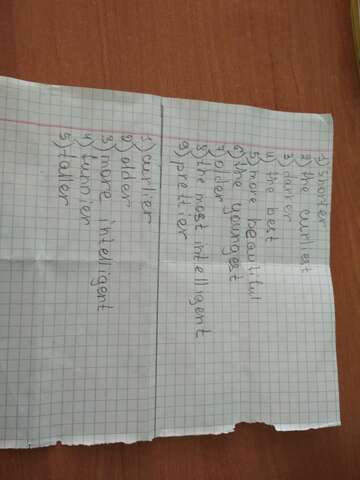 1) shorter
2) the curliest
3) darker
4) the best
5) more beautiful
6) the youngest
7) older
8) the most intelligent
9) prettier
1) curlier
2) older
3) more intelligent
4) funnier
5) taller